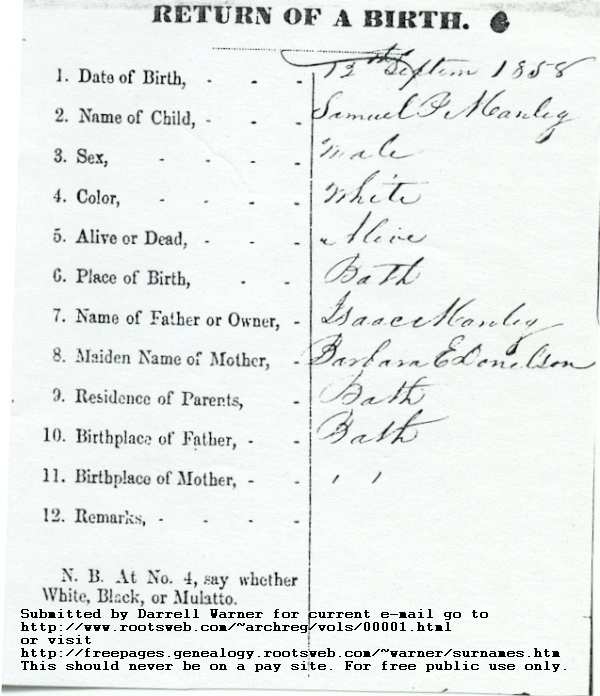 RETURN OF A BIRTH.
1. Date of Birth, - - - 12th Septem 1858
2. Name of Child, - - - Samuel P Manley
3. Sex, - - - - Male
4. Color, - - - - White
5. Alive or Dead, - - - Alive
6. Place of Birth, - - Bath
7. Name of Father or Owner, - Isaac Manley
8. Maiden Name of Mother, - Barbara E Donelson
9. Residence of Parents, - Bath
10. Birthplace of Father, - - Bath
11. Birthplace of Mother, - - , ,
12. Remarks, - - - -
N. B. At No. 4, say whether
White, Black, or Mulatto.
Submitted by Darrell Warner for current e-mail go to
http://www.rootsweb.com/~archreg/vols/00001.html
or visit
http://freepages.genealogy.rootsweb.com/~warner/surnames.htm
This should never be on a pay site. For free public use only.